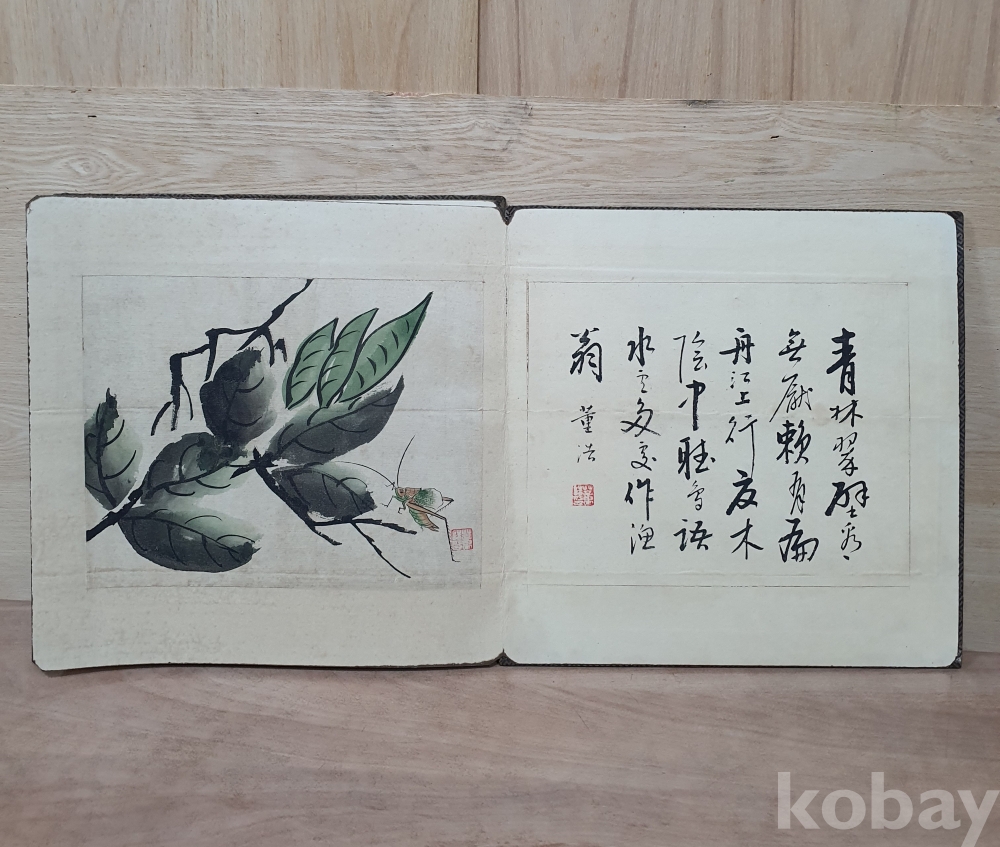 青林翠壁看
無厭賴有扁
舟江上行夏木
陰中聽鳥語
水雲多處作漁
翁
董浩
kobay